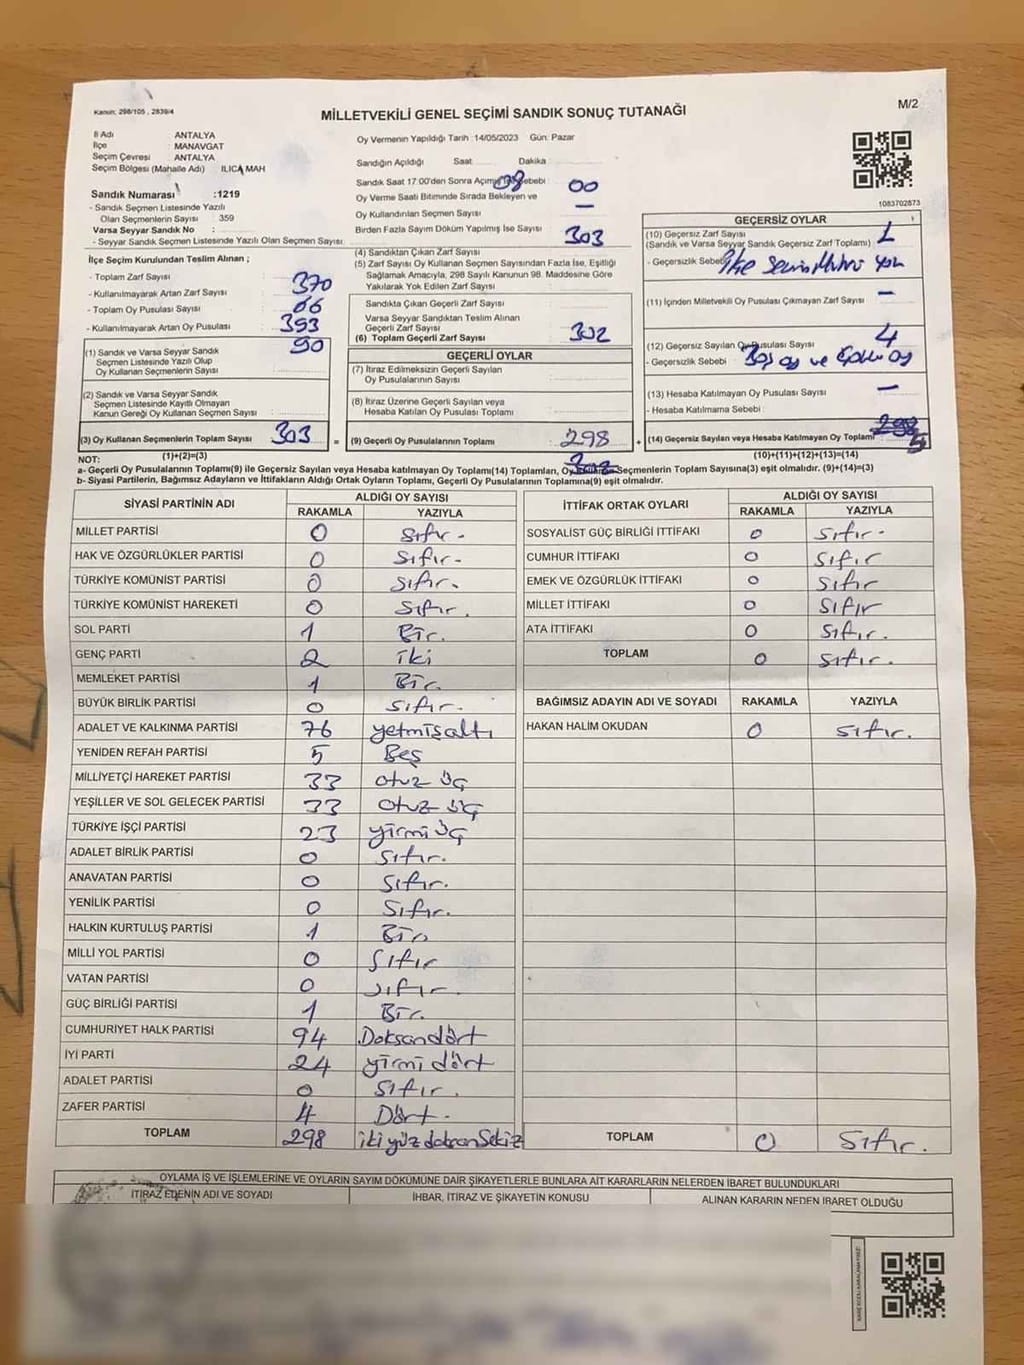 Kanun: 298/105 , 2839/4
MİLLETVEKİLİ GENEL SEÇİMİ SANDIK SONUÇ TUTANAĞI
M/2
İl Adı : ANTALYA
İlçe : MANAVGAT
Seçim Çevresi : ANTALYA
Seçim Bölgesi (Mahalle Adı) ILICA MAH
Sandık Numarası :1219
- Sandık Seçmen Listesinde Yazılı
Olan Seçmenlerin Sayısı : 359
Varsa Seyyar Sandık No :
- Seyyar Sandık Seçmen Listesinde Yazılı Olan Seçmen Sayısı:
Oy Vermenin Yapıldığı Tarih :14/05/2023 Gün: Pazar
Sandığın Açıldığı Saat Dakika
Sandık Saat 17:00'den Sonra Açılmış İse Sebebi : 08 00
Oy Verme Saati Bitiminde Sırada Bekleyen ve
Oy Kullandırılan Seçmen Sayısı : —
Birden Fazla Sayım Döküm Yapılmış İse Sayısı :
1083702873
İlçe Seçim Kurulundan Teslim Alınan ;
- Toplam Zarf Sayısı : 370
- Kullanılmayarak Artan Zarf Sayısı : 66
- Toplam Oy Pusulası Sayısı : 393
- Kullanılmayarak Artan Oy Pusulası : 90
(1) Sandık ve Varsa Seyyar Sandık
Seçmen Listesinde Yazılı Olup
Oy Kullanan Seçmenlerin Sayısı :
(2) Sandık ve Varsa Seyyar Sandık
Seçmen Listesinde Kayıtlı Olmayan
Kanun Gereği Oy Kullanan Seçmen Sayısı :
(3) Oy Kullanan Seçmenlerin Toplam Sayısı : 303
(1)+(2)=(3)
(4) Sandıktan Çıkan Zarf Sayısı : 303
(5) Zarf Sayısı Oy Kullanan Seçmen Sayısından Fazla İse, Eşitliği
Sağlamak Amacıyla, 298 Sayılı Kanunun 98. Maddesine Göre
Yakılarak Yok Edilen Zarf Sayısı :
Sandıkta Çıkan Geçerli Zarf Sayısı :
Varsa Seyyar Sandıktan Teslim Alınan
Geçerli Zarf Sayısı :
(6) Toplam Geçerli Zarf Sayısı : 302
GEÇERLİ OYLAR
(7) İtiraz Edilmeksizin Geçerli Sayılan
Oy Pusulalarının Sayısı :
(8) İtiraz Üzerine Geçerli Sayılan veya
Hesaba Katılan Oy Pusulası Toplamı :
= (9) Geçerli Oy Pusulalarının Toplamı : 298
GEÇERSİZ OYLAR
(10) Geçersiz Zarf Sayısı
(Sandık ve Varsa Seyyar Sandık Geçersiz Zarf Toplamı) : 1
- Geçersizlik Sebebi :
(11) İçinden Milletvekili Oy Pusulası Çıkmayan Zarf Sayısı : —
(12) Geçersiz Sayılan Oy Pusulası Sayısı : 4
- Geçersizlik Sebebi : Boş oy ve
(13) Hesaba Katılmayan Oy Pusulası Sayısı : —
- Hesaba Katılmama Sebebi :
+ (14) Geçersiz Sayılan veya Hesaba Katılmayan Oy Toplamı : 5
(10)+(11)+(12)+(13)=(14)
NOT:
a- Geçerli Oy Pusulalarının Toplamı(9) ile Geçersiz Sayılan veya Hesaba katılmayan Oy Toplam(14) Toplamları, Oy Seçmenlerin Toplam Sayısına(3) eşit olmalıdır. (9)+(14)=(3)
b- Siyasi Partilerin, Bağımsız Adayların ve İttifakların Aldığı Ortak Oyların Toplamı, Geçerli Oy Pusulalarının Toplamına(9) eşit olmalıdır.
SİYASİ PARTİNİN ADI
ALDIĞI OY SAYISI
RAKAMLA YAZIYLA
MİLLET PARTİSİ 0 Sıfır.
HAK VE ÖZGÜRLÜKLER PARTİSİ 0 Sıfır.
TÜRKİYE KOMÜNİST PARTİSİ 0 Sıfır.
TÜRKİYE KOMÜNİST HAREKETİ 0 Sıfır.
SOL PARTİ 1 Bir.
GENÇ PARTİ 2 iki
MEMLEKET PARTİSİ 1 Bir.
BÜYÜK BİRLİK PARTİSİ 0 Sıfır.
ADALET VE KALKINMA PARTİSİ 76 yetmişaltı
YENİDEN REFAH PARTİSİ 5 Beş
MİLLİYETÇİ HAREKET PARTİSİ 33 otuz üç
YEŞİLLER VE SOL GELECEK PARTİSİ 33 otuz üç
TÜRKİYE İŞÇİ PARTİSİ 23 yirmi üç
ADALET BİRLİK PARTİSİ 0 Sıfır.
ANAVATAN PARTİSİ 0 Sıfır.
YENİLİK PARTİSİ 0 Sıfır.
HALKIN KURTULUŞ PARTİSİ 1 Bir
MİLLİ YOL PARTİSİ 0 Sıfır
VATAN PARTİSİ 0 Sıfır.
GÜÇ BİRLİĞİ PARTİSİ 1 Bir.
CUMHURİYET HALK PARTİSİ 94 Doksandört
İYİ PARTİ 24 yirmi dört
ADALET PARTİSİ 0 Sıfır.
ZAFER PARTİSİ 4 Dört.
TOPLAM 298 iki yüz doksan Sekiz
İTTİFAK ORTAK OYLARI
ALDIĞI OY SAYISI
RAKAMLA YAZIYLA
SOSYALİST GÜÇ BİRLİĞİ İTTİFAKI 0 Sıfır.
CUMHUR İTTİFAKI 0 Sıfır
EMEK VE ÖZGÜRLÜK İTTİFAKI 0 Sıfır
MİLLET İTTİFAKI 0 Sıfır
ATA İTTİFAKI 0 Sıfır.
TOPLAM 0 Sıfır.
BAĞIMSIZ ADAYIN ADI VE SOYADI RAKAMLA YAZIYLA
HAKAN HALİM OKUDAN 0 Sıfır.
TOPLAM 0 Sıfır.
OYLAMA İŞ VE İŞLEMLERİNE VE OYLARIN SAYIM DÖKÜMÜNE DAİR ŞİKAYETLERLE BUNLARA AİT KARARLARIN NELERDEN İBARET BULUNDUKLARI
İTİRAZ EDENİN ADI VE SOYADI
İHBAR, İTİRAZ VE ŞİKAYETİN KONUSU
ALINAN KARARIN NEDEN İBARET OLDUĞU